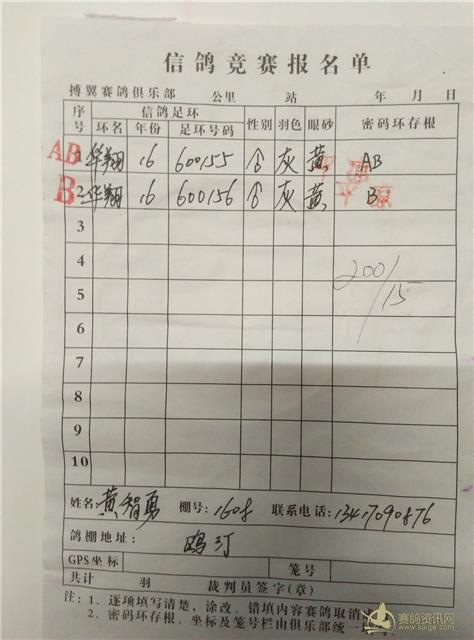 信鸽竞赛报名单
搏翼赛鸽俱乐部 公里 站 年 月 日
序号 信鸽足环 性别 羽色 眼砂 密码环存根
环名 年份 足环号码
AB 1 华翔 16 600155 灰 黄 AB
B 2 华翔 16 600156 灰 黄 B
3
4
200/15
5
6
7
8
9
10
姓名: 黄智勇 棚号: 1608 联系电话: 13417090876
鸽棚地址:
GPS坐标 笼号
共计 羽 裁判员签字(章)
注: 1、逐项填写清楚、涂改、错填内容赛鸽取消
2、密码环存根、坐标及笼号栏由俱乐部统一
赛鸽资讯网
www.saige.com